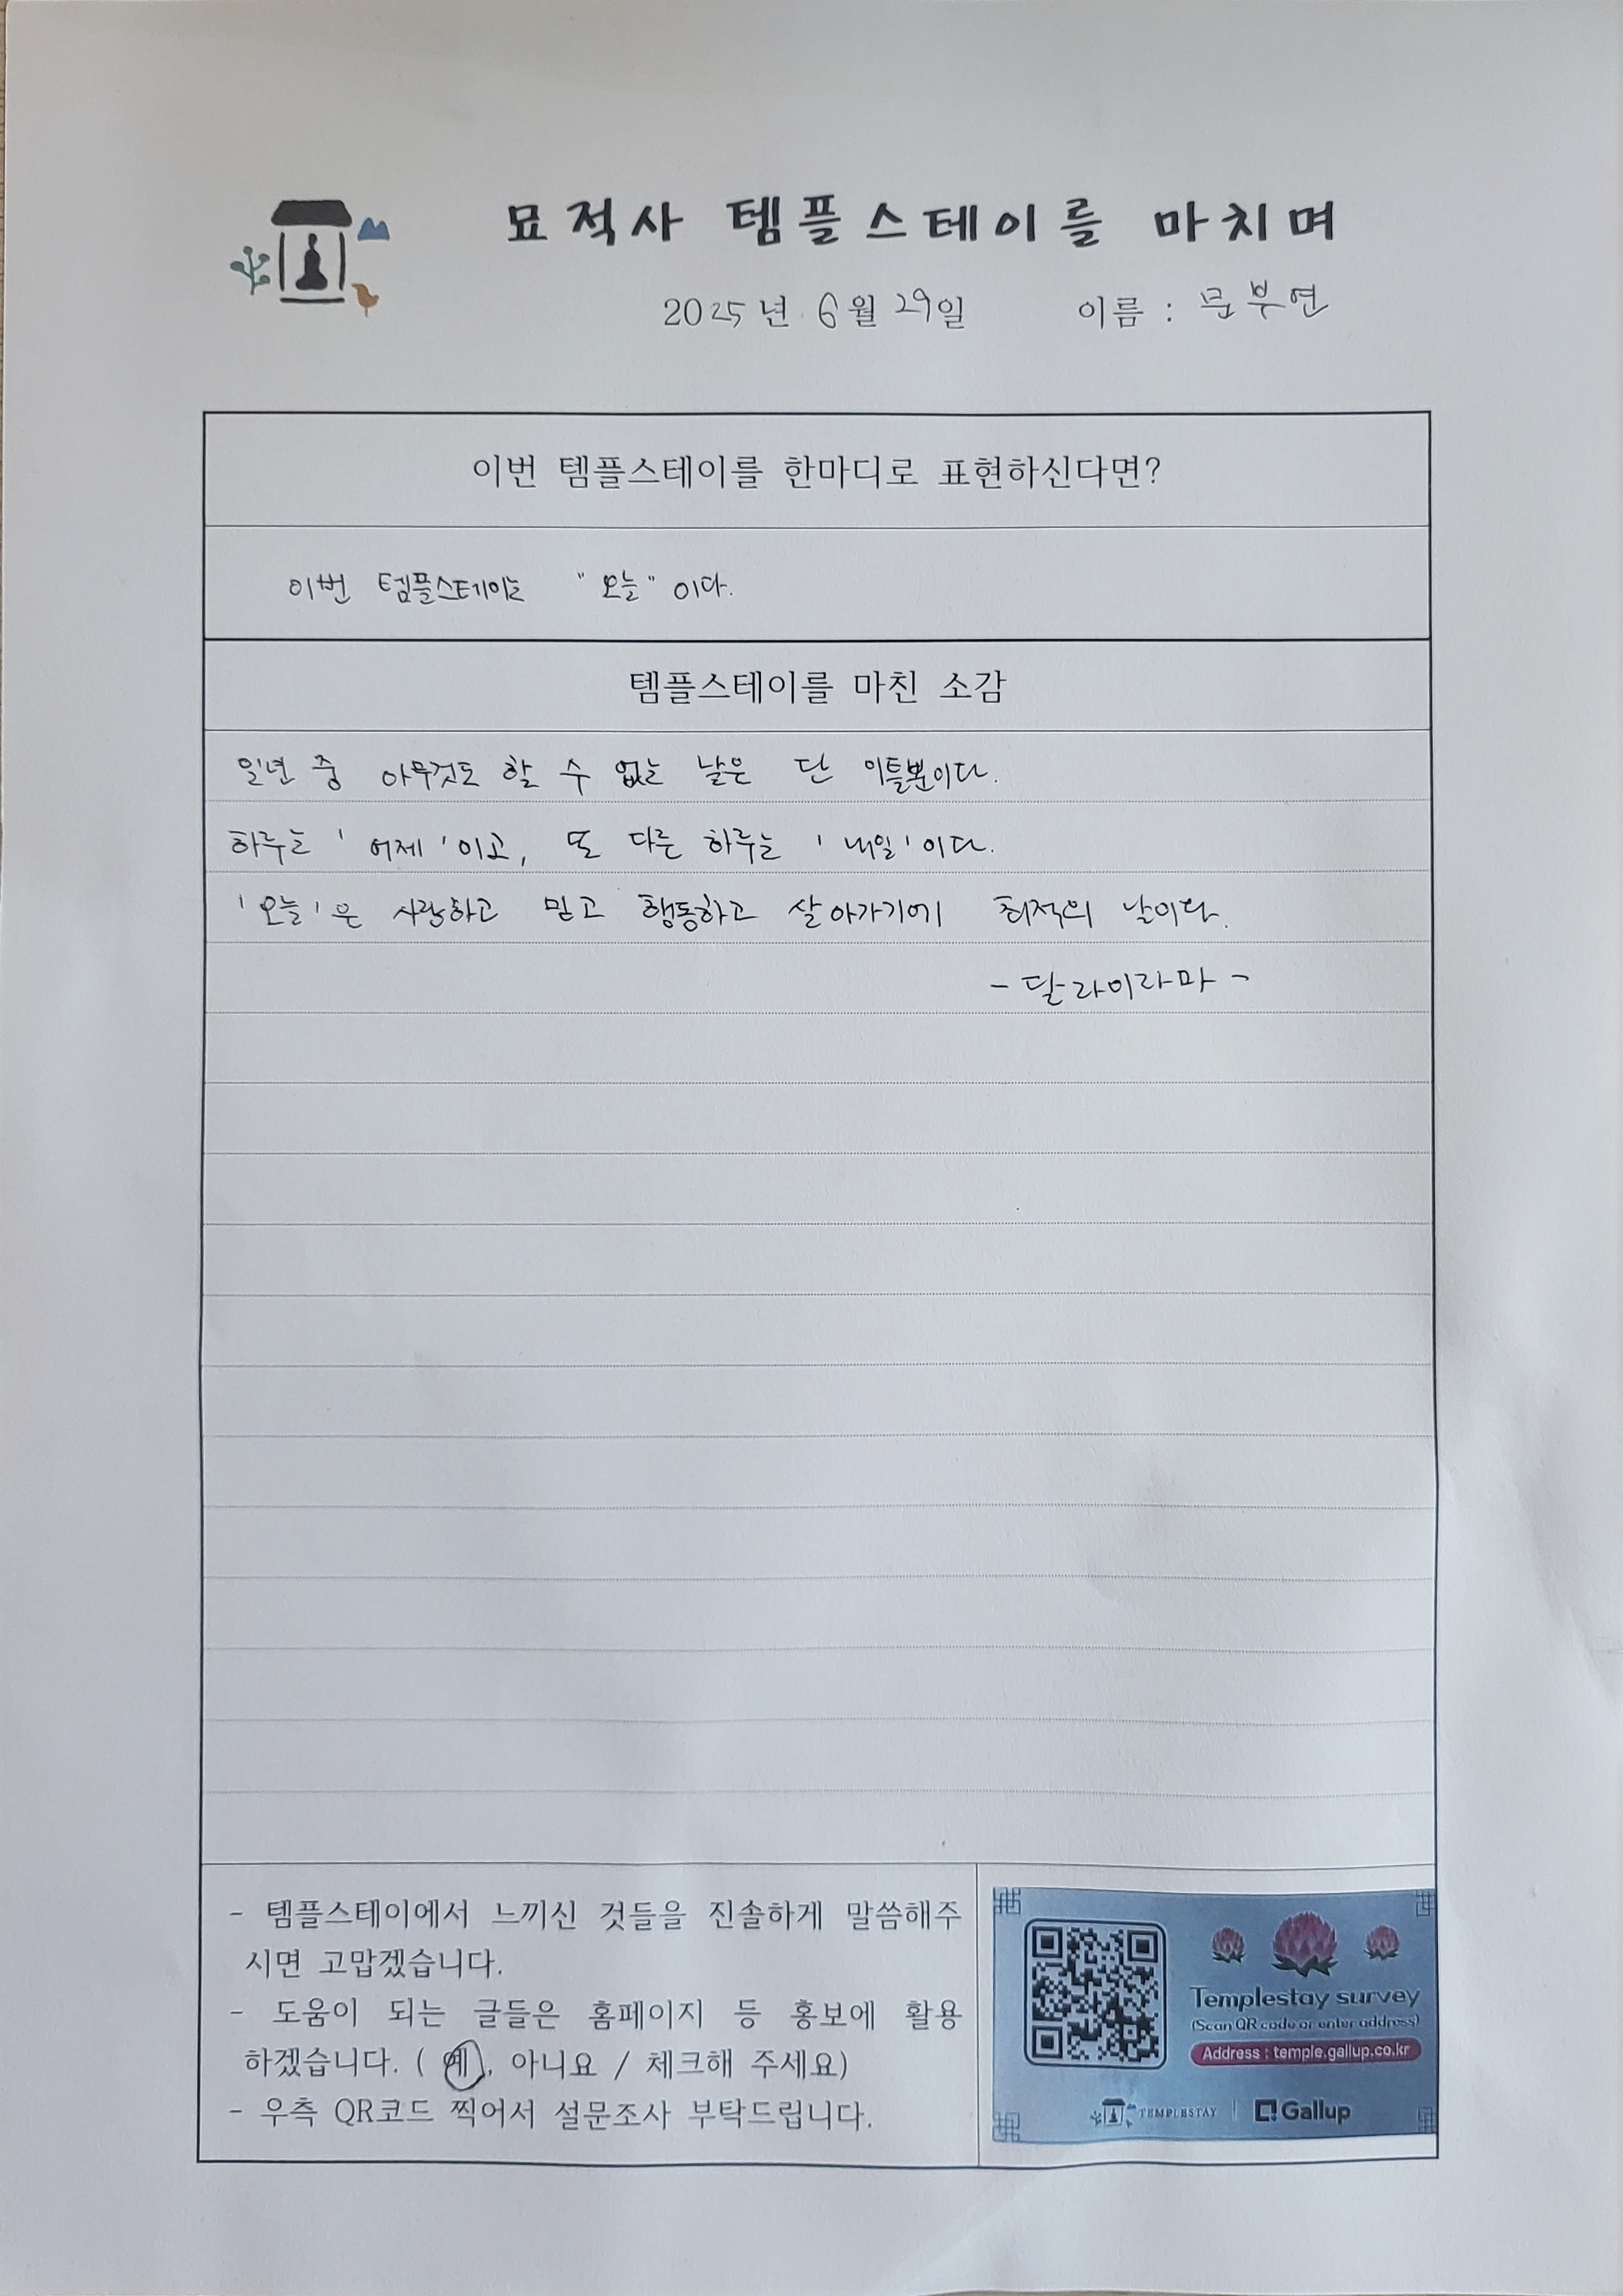 묘적사 템플스테이를 마치며
2025년 6월 29일 이름 : 문부연
이번 템플스테이를 한마디로 표현하신다면?
이번 템플스테이는 "오늘" 이다.
템플스테이를 마친 소감
일년 중 아무것도 할 수 없는 날은 단 이틀뿐이다.
하루는 '어제'이고, 또 다른 하루는 '내일'이다.
'오늘'은 사랑하고 믿고 행동하고 살아가기에 최적의 날이다.
- 달라이라마 -
- 템플스테이에서 느끼신 것들을 진솔하게 말씀해주
시면 고맙겠습니다.
- 도움이 되는 글들은 홈페이지 등 홍보에 활용
하겠습니다. ( 예, 아니요 / 체크해 주세요)
- 우측 QR코드 찍어서 설문조사 부탁드립니다.
Templestay survey
(Scan QR code or enter address)
Address : temple.gallup.co.kr
TEMPLESTAY | Gallup